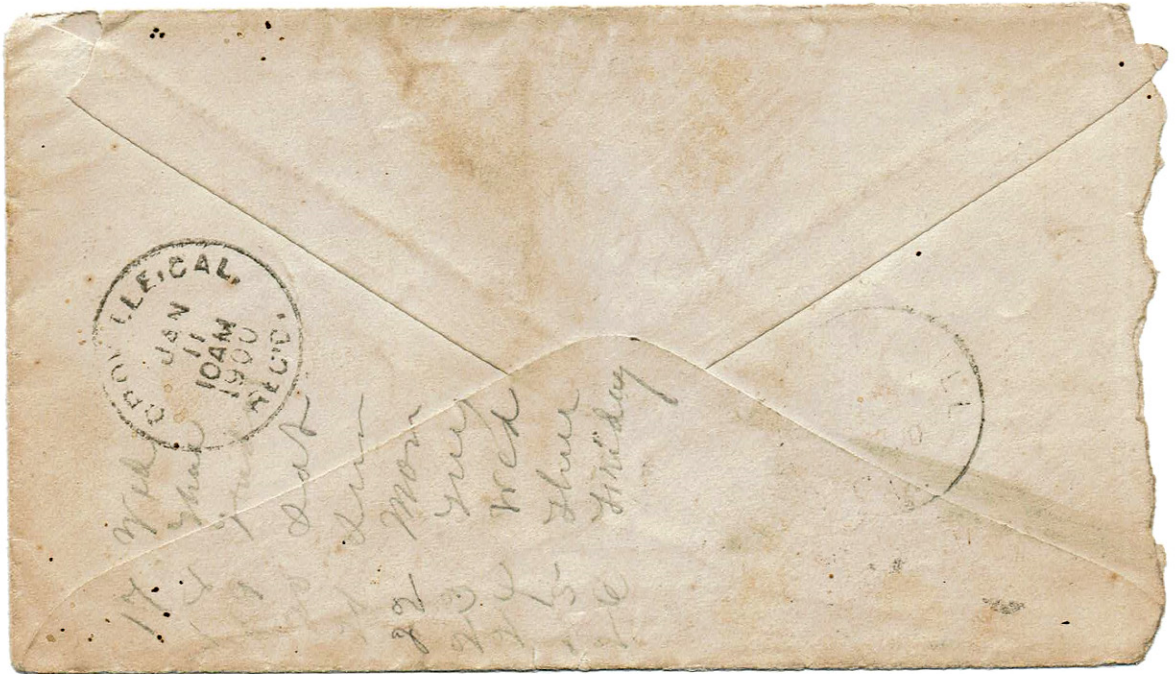 OROVILLE, CAL.
JAN
11
10AM
1900
REC'D.
17 Wed
Thur
Sat
Sun
22 Mon
23 Tue
24 Wed
25 Thur
26 Friday
LL